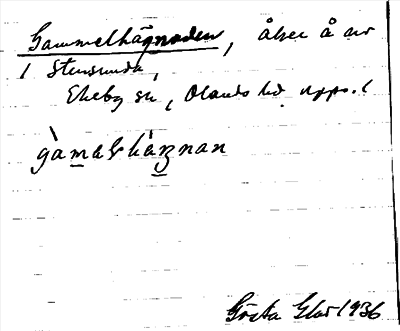 Gammelhägnaden, åker å av
i Stensunda,
Ekeby sn, Olands hd Upps. l
gàmalhàgnan
Gösta Glas 1936